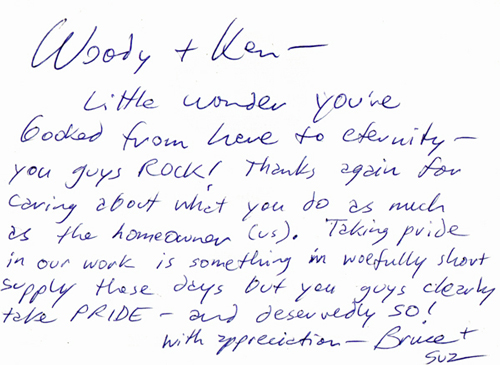 Woody + Ken —
Little wonder you've
booked from here to eternity —
you guys ROCK! Thanks again for
caring about what you do as much
as the homeowner (us). Taking pride
in our work is something in woefully short
supply these days but you guys clearly
take PRIDE — and deservedly so!
with appreciation — Bruce +
Suz